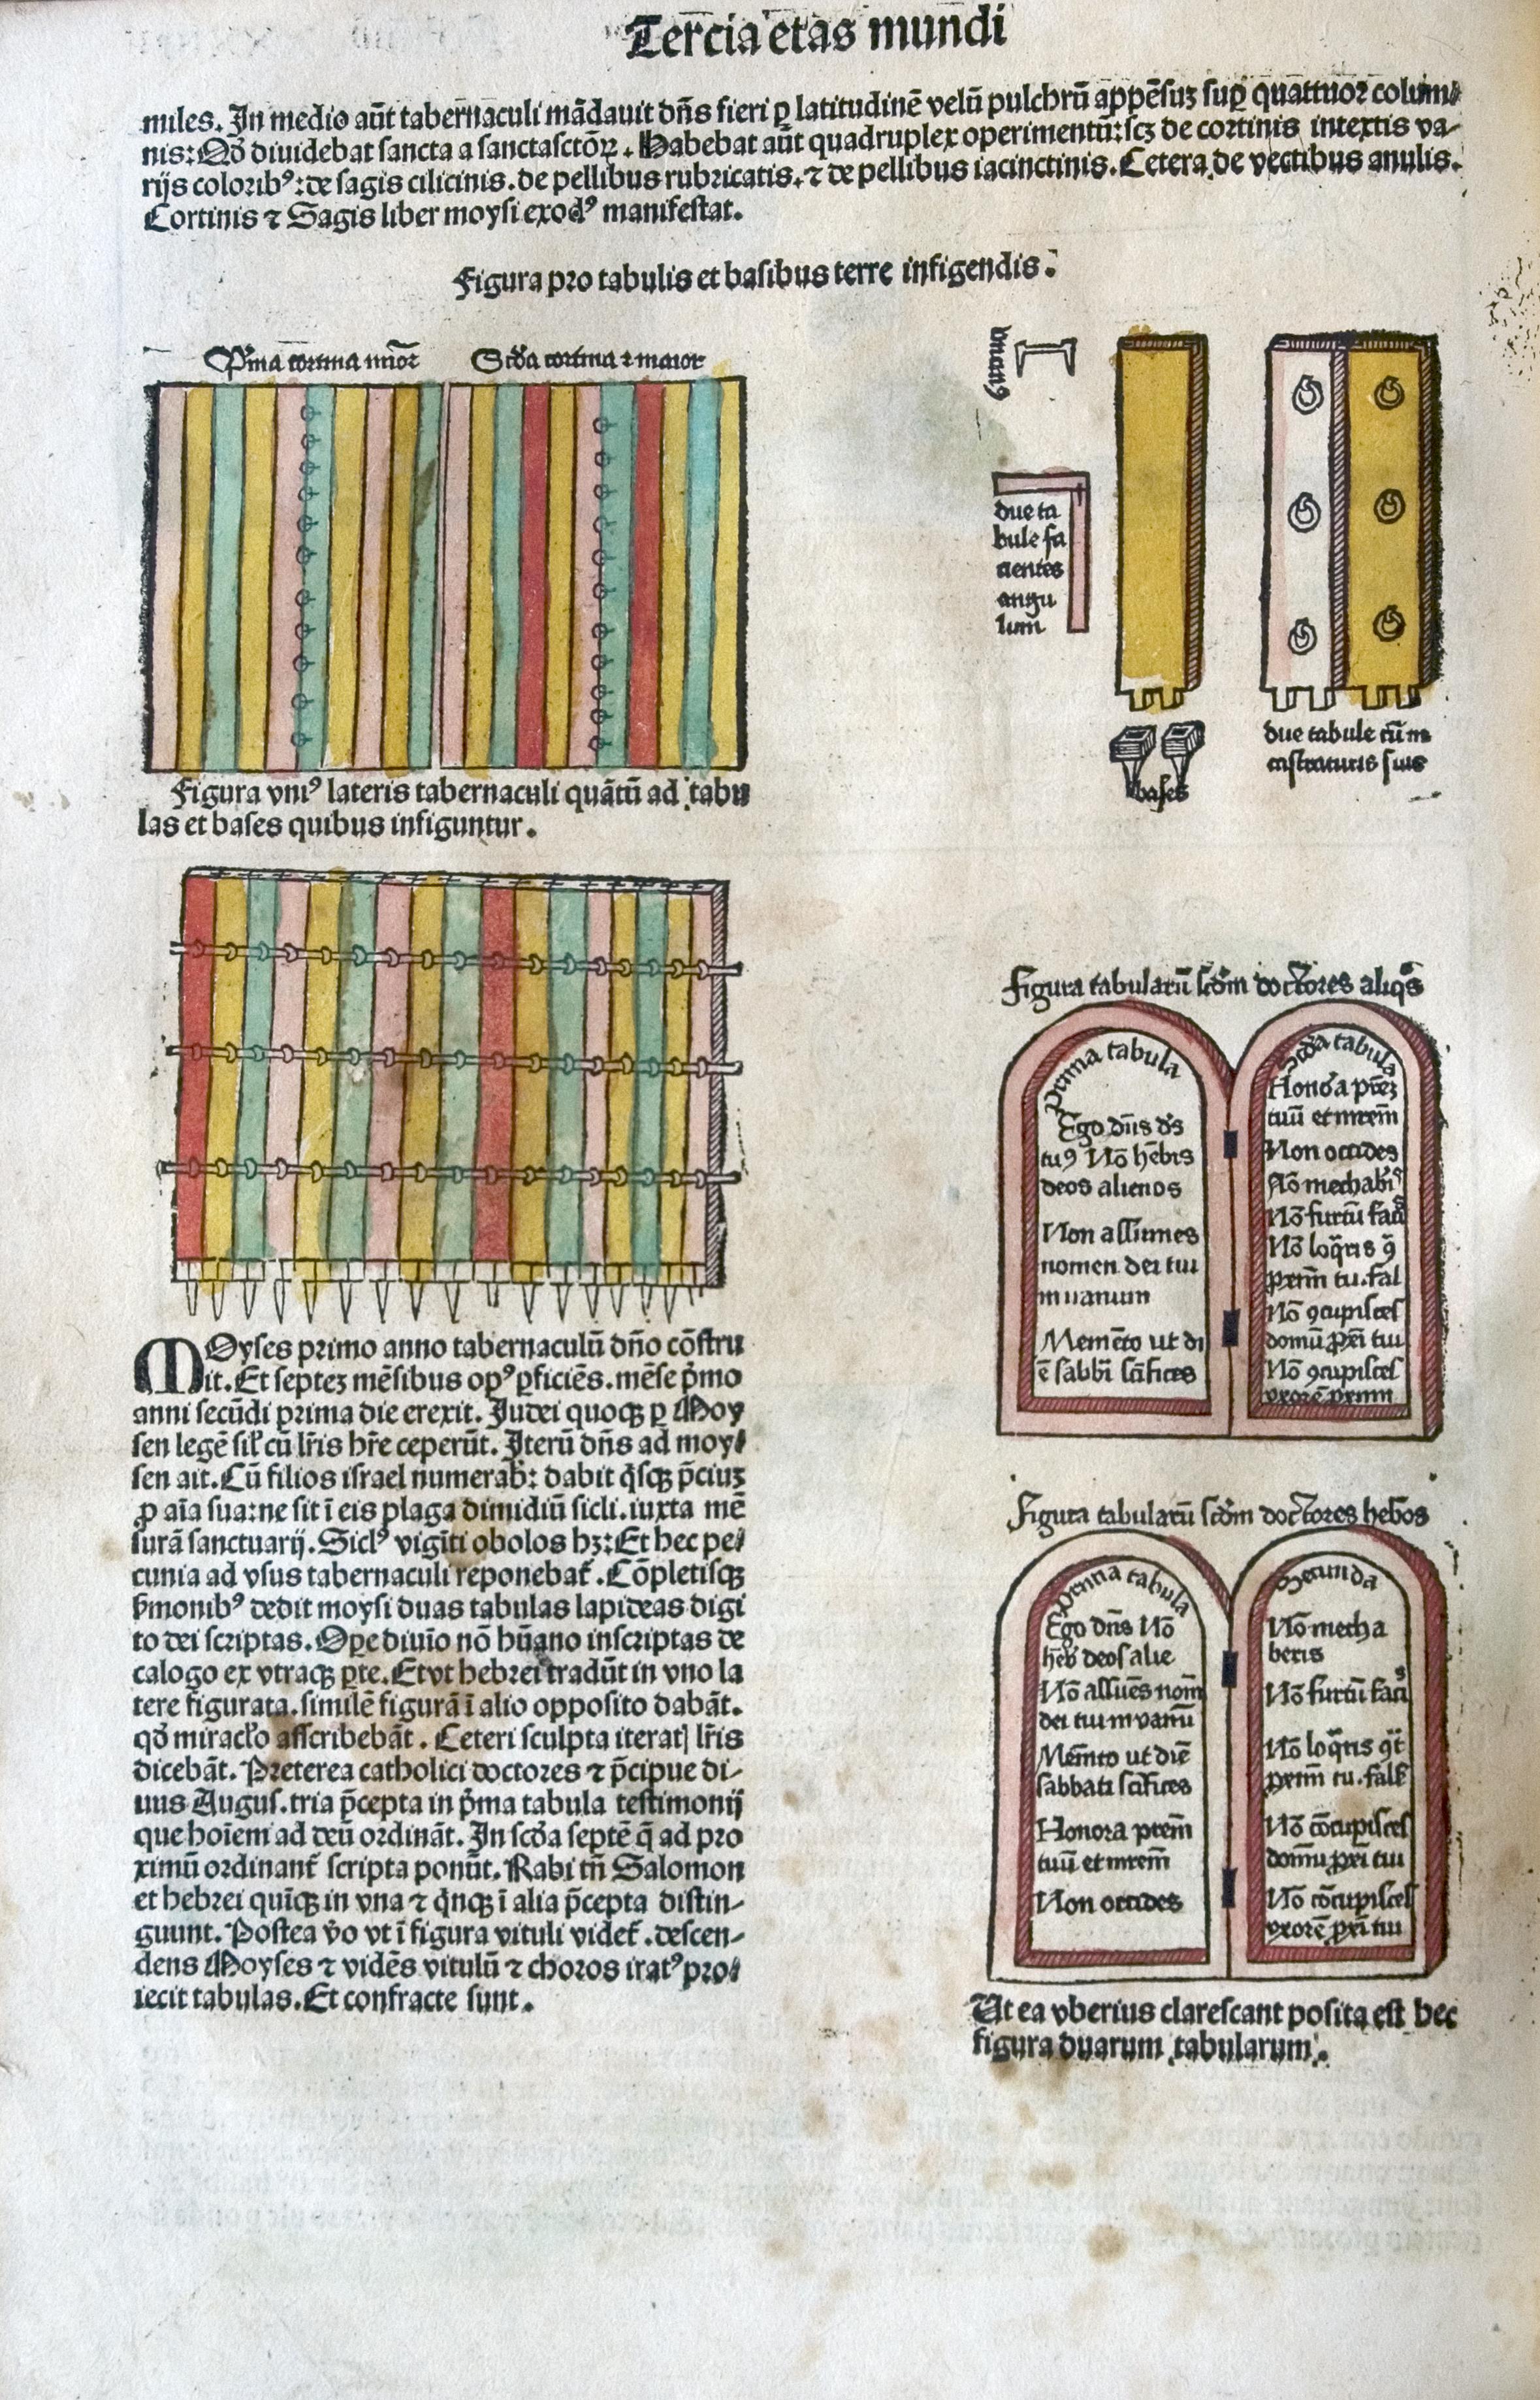 Tercia etas mundi
miles. In medio aūt tabernaculi mādauit dn̄s fieri ꝑ latitudinē velū pulchrū appēsuꝫ suꝑ quattuor colum⸗
nis: Qd̛ diuidebat sancta a sanctasctōꝝ. Habebat aūt quadruplex operimentū: scꝫ de cortinis intextis va⸗
rijs colorib⁹: de sagis cilicinis. de pellibus rubricatis. ⁊ de pellibus iacinctinis. Cetera de vectibus anulis.
Cortinis ⁊ Sagis liber moysi exod⁹ manifestat.
Figura pro tabulis et basibus terre infigendis.
Pͥma cortina mīor Scd̛a cortina ⁊ maior
Figura vni⁹ lateris tabernaculi quātū ad tabu
las et bases quibus infiguntur.
Moyses primo anno tabernaculū dn̄o cōstru
it. Et septeꝫ mēsibus op⁹ ꝑficiēs. mēse pͥmo
anni secūdi prima die erexit. Iudei quoqꝫ ꝑ Moy
sen legē sil̛ cū lr̄is hr̄e ceperūt. Iterū dn̄s ad moy⸗
sen ait. Cū filios israel numerab̛: dabit qͥsqꝫ p̄ciuꝫ
ꝓ aīa sua: ne sit ī eis plaga dimidiū sicli. iuxta mē
surā sanctuarij. Sicl⁹ vigīti obolos hꝫ: Et hec pe⸗
cunia ad vsus tabernaculi reponebat̛. Cōpletisqꝫ
ẜmonib⁹ dedit moysi duas tabulas lapideas digi
to dei scriptas. Oꝑe diuīo nō hūano inscriptas de
calogo ex vtraqꝫ ꝑte. Et vt hebrei tradūt in vno la
tere figurata. similē figurā ī alio opposito dabāt.
qd̛ miracl̛o asscribebāt. Ceteri sculpta iteratꝭ lr̄is
dicebāt. Preterea catholici doctores ⁊ p̄cipue di⸗
uus Augus. tria p̄cepta in pͥma tabula testimonij
que hoīem ad deū ordināt. In scd̛a septē q̄ ad pro
ximū ordinant̛ scripta ponūt. Rabi tn̄ Salomon
et hebrei quīqꝫ in vna ⁊ qͥnqꝫ ī alia p̄cepta distin⸗
guunt. Postea v̛o vt ī figura vituli videt̛. descen⸗
dens Moyses ⁊ vidēs vitulū ⁊ choros irat⁹ pro⸗
iecit tabulas. Et confracte sunt.
vncin⁹
due ta
bule fa
cientes
angu
lum̄
bases
due tabule cū in
castraturis suis
Figura tabularū scd̛m doctores aliqͦs
Prima tabula
Ego dn̄s d̛s
tu⁹ Nō hēbis
deos alienos
Non assumes
nomen dei tui
in uanum
Memēto ut di
ē sabbi̅ scīfices
Scd̛a tabula
Honora pr̄eꝫ
tuū et mr̄em
Non occides
Nō mechabi̛
Nō furtū faci̛
Nō loq̄ris ꝯ̄
prxm̄ tu. fal
Nō ꝯcupisces
domū ꝓxi̅ tui
Nō ꝯcupisces
vxorē prximi
Figura tabularū scd̛m doctores heb̛os
Prima tabula
Ego dn̄s Nō
hēb̛ deos alie
Nō assūes nom̄
dei tui in vanū
Memēto ut diē
sabbati scīfices
Honora prem̄
tuū et mrem̄
Non occides
Secunda
Nō mecha
beris
Nō furtū facis
Nō loq̄ris ꝯt̄
prxm̄ tu. fals̛
Nō cōcupisces
domū prxi̅ tui
Nō cōcupisces
vxorē prxi̅ tui
Ut ea vberius clarescant posita est hec
figura duarum tabularum.